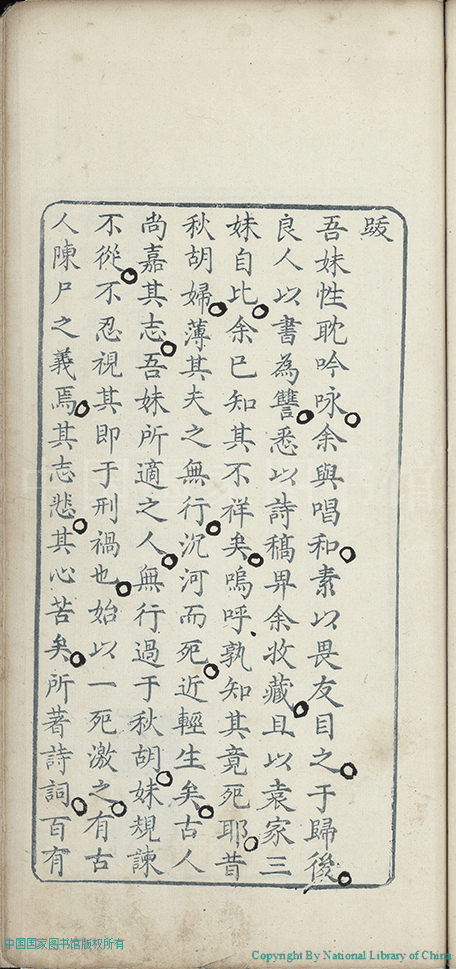 跋
吾妹性耽吟咏余與唱和素以畏友目之于歸後
良人以書為讐悉以詩稿畀余收藏且以袁家三
妹自比余已知其不祥矣嗚呼孰知其竟死耶昔
秋胡婦薄其夫之無行沉河而死近輕生矣古人
尚嘉其志吾妹所適之人無行過于秋胡妹規諫
不從不忍視其即于刑禍也始以一死激之有古
人陳尸之義焉其志悲其心苦矣所著詩詞百有
中国国家图书馆版权所有
Copyright By National Library of China